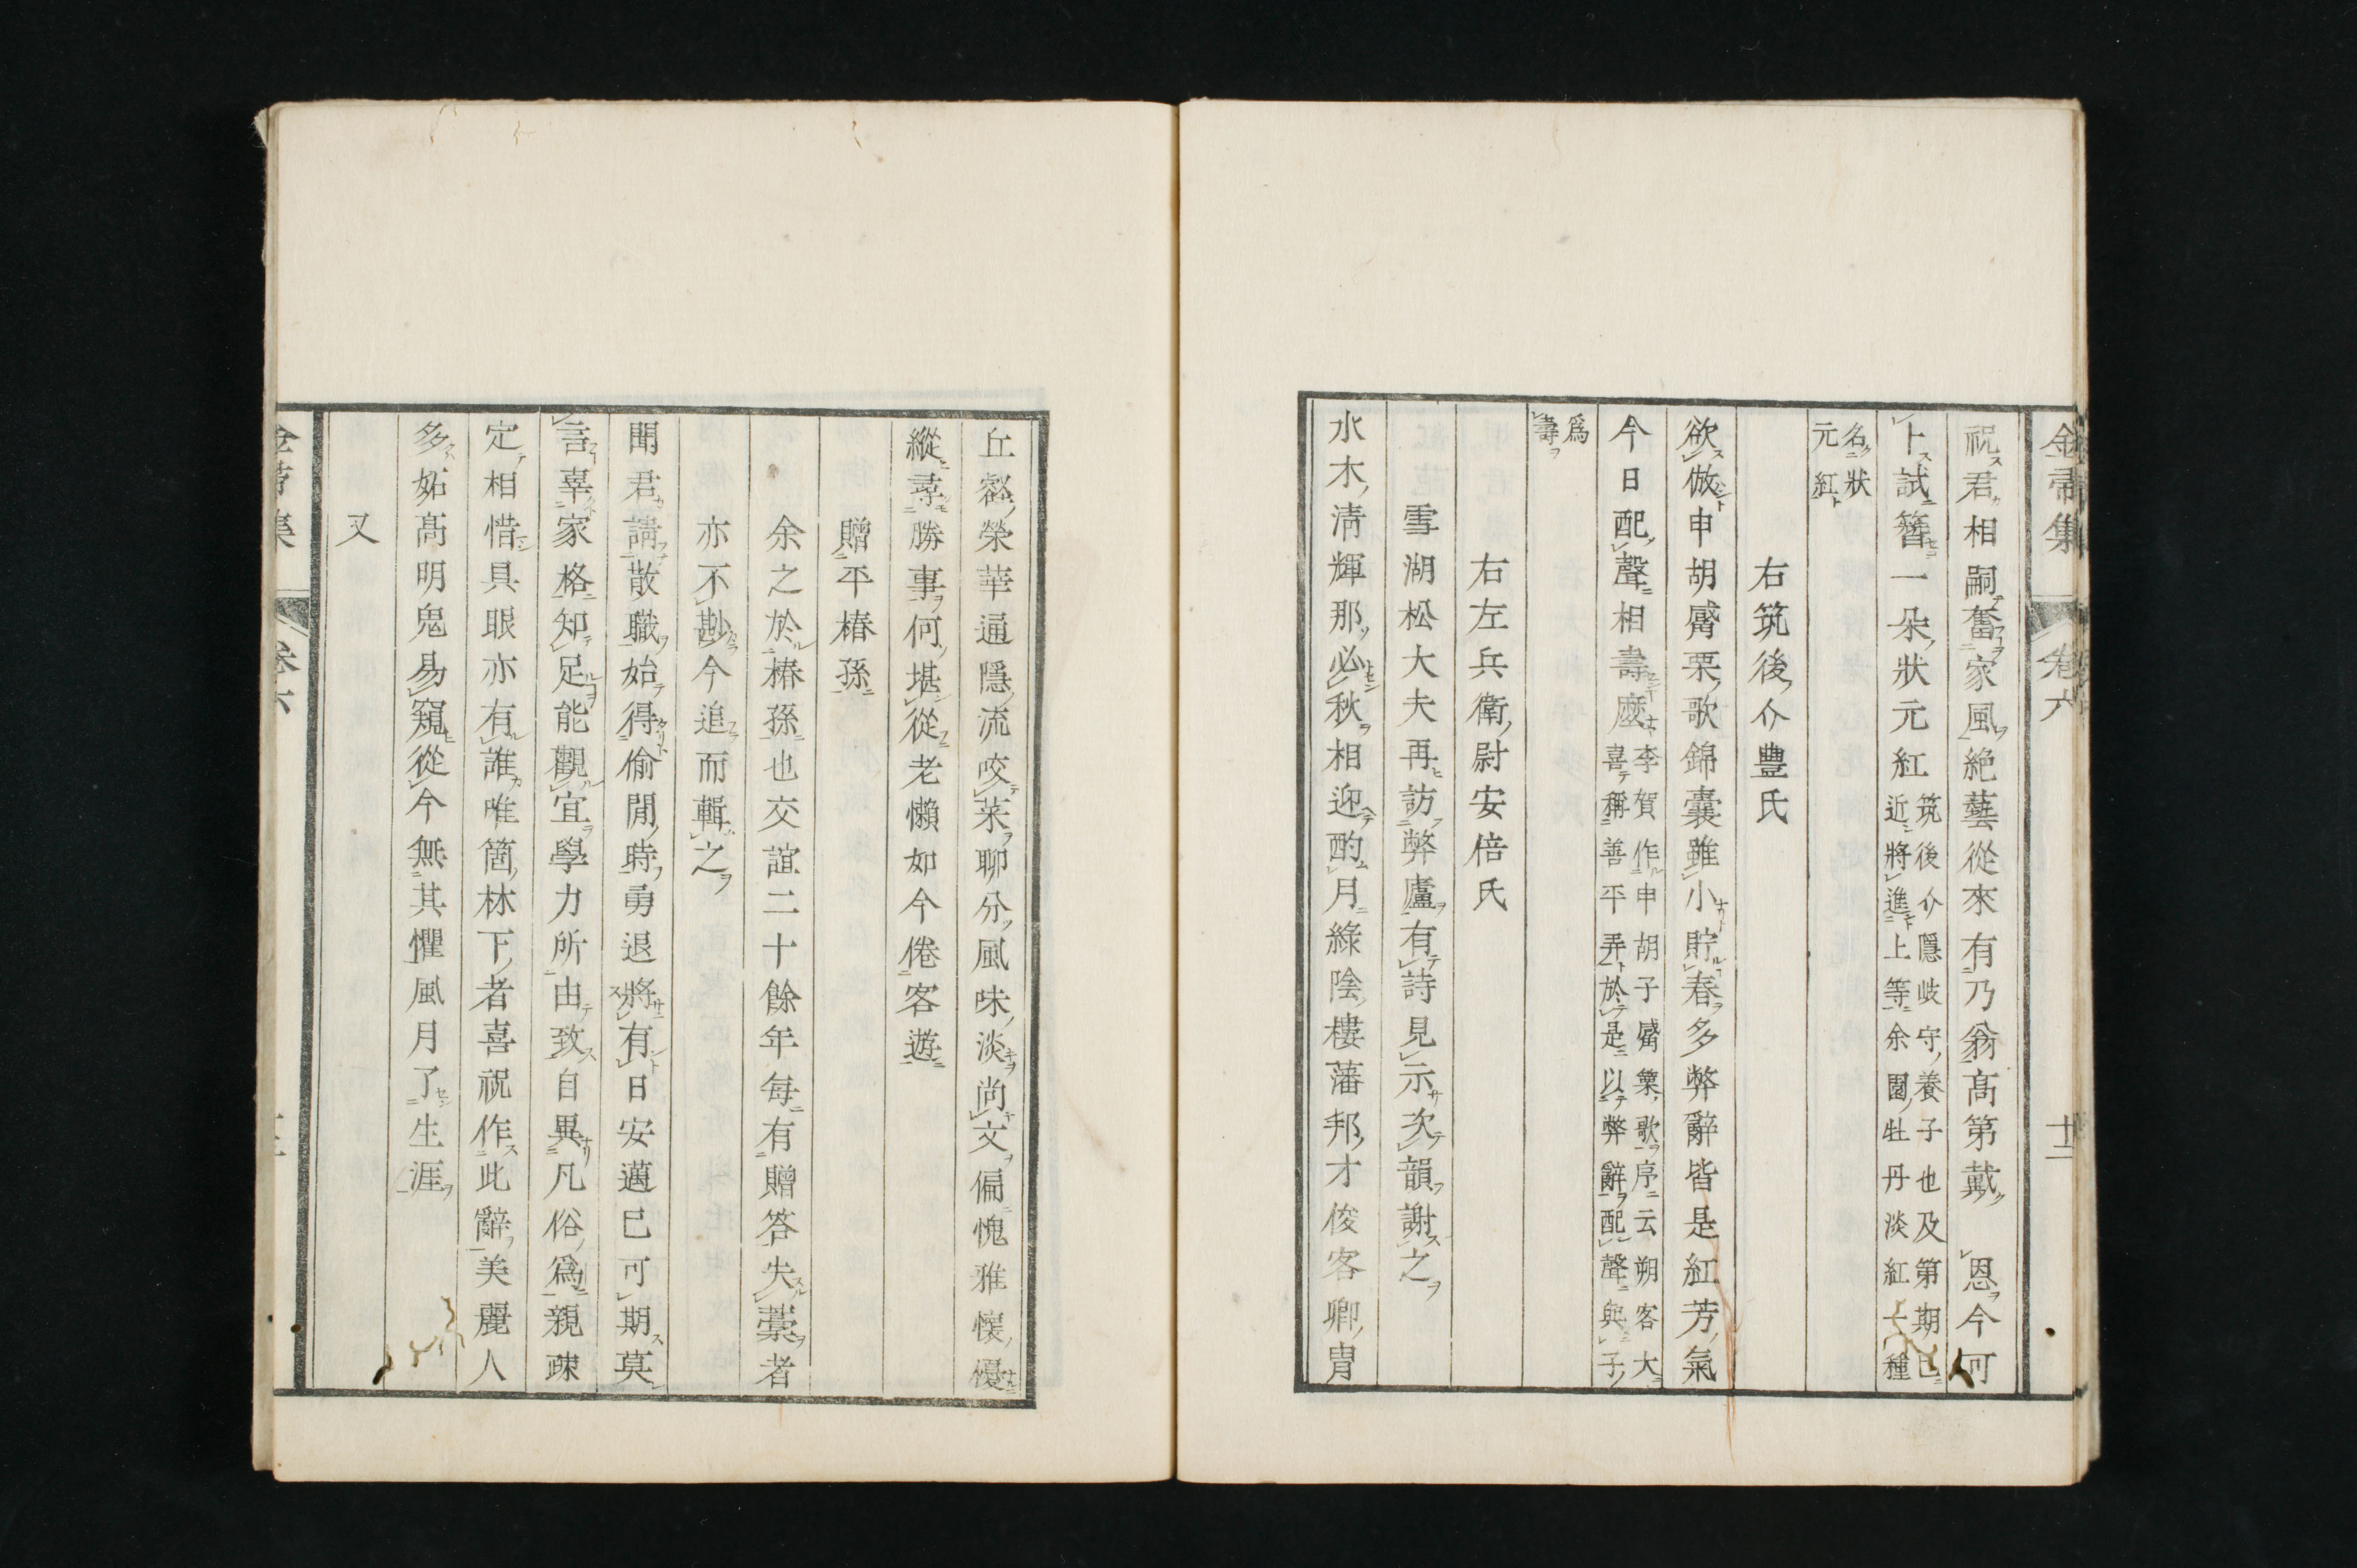 金帚集 卷六 十二
祝君相嗣奮家風絶藝從來有乃翁高第戴 恩今可
卜試簪一朶狀元紅筑後介隱岐守養子也及第期已近將進上等余園牡丹淡紅一種
名狀元紅
右筑後介豊氏
欲倣申胡觱栗歌錦囊雖小貯春多弊辭皆是紅芳氣
今日配聲相壽麼李賀作申胡子觱篥歌序云朔客大喜稱善平弄於是以弊辭配聲與子
爲壽
右左兵衛尉安倍氏
雪湖松大夫再訪弊廬有詩見示次韻謝之
水木清輝那必秋相迎酌月綠陰樓藩邦才俊客卿冑
丘壑榮華通隱流咬菜聊分風味淡尚文偏愧雅懷優
縱尋勝事何堪從老懶如今倦客遊
贈平椿孫
余之於椿孫也交誼二十餘年毎有贈答失藁者
亦不尠今追而輯之
聞君請散職始得偷閒時勇退將有日安邁已可期莫
言辜家格知足能觀宜學力所由致自異凡俗爲親疎
定相惜具眼亦有誰唯箇林下者喜祝作此辭美麗人
多妬高明鬼易窺從今無其懼風月了生涯
又
卷六